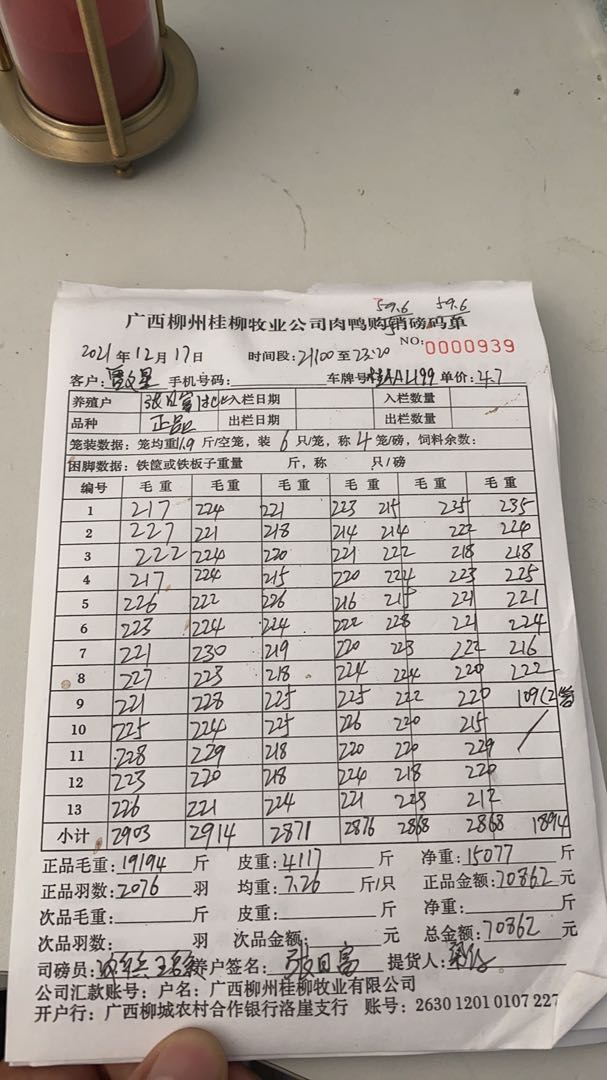 59.6 59.6
广西柳州桂柳牧业公司肉鸭购销磅码单
2021年12月17日 时间段:21:00至23:20 NO:0000939
客户: 手机号码: 车牌号 AAL199 单价:4.7
养殖户 入栏日期 入栏数量
品种 正品 出栏日期 出栏数量
笼装数据:笼均重11.9斤/空笼,装6只/笼,称4笼/磅,饲料余数:
困脚数据:铁筐或铁板子重量 斤,称 只/磅
编号 毛重 毛重 毛重 毛重 毛重 毛重
1 217 224 221 223 215 235 235
2 227 221 218 214 214 222 224
3 222 224 220 221 222 218 218
4 217 224 215 220 224 223 225
5 226 222 226 216 215 221 221
6 223 224 224 222 228 221 224
7 221 230 219 220 223 222 216
8 227 223 218 224 224 220 222
9 221 228 225 225 222 220 109(2笼
10 225 224 225 226 220 215
11 228 229 218 220 220 229
12 223 220 218 224 218 220
13 226 221 224 221 223 212
小计 2903 2914 2871 2876 2868 2868 1894
正品毛重:19194斤 皮重:4117斤 净重:15077斤
正品羽数:2076羽 均重:7.26斤/只 正品金额:70862元
次品毛重: 斤 皮重: 斤 净重: 斤
次品羽数: 羽 次品金额: 元 总金额:70862元
司磅员: 养户签名: 提货人:
公司汇款账号:户名:广西柳州桂柳牧业有限公司
开户行:广西柳城农村合作银行洛崖支行 账号:2630 1201 0107 227